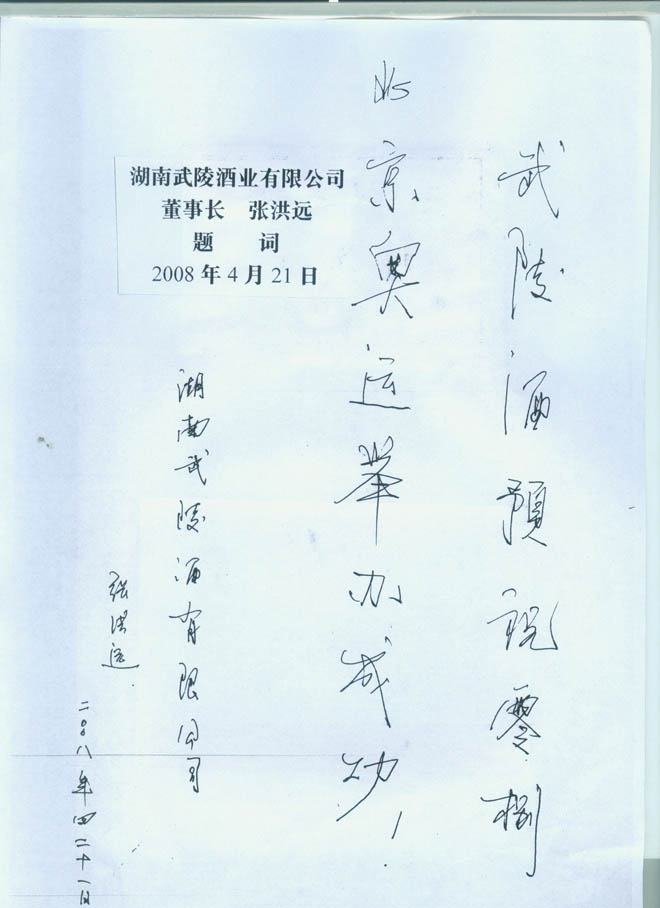 武陵酒预祝零捌
北京奥运举办成功！
湖南武陵酒业有限公司
董事长 张洪远
题 词
2008年4月21日
湖南武陵酒有限公司
张洪远
二〇〇八年四二十一日